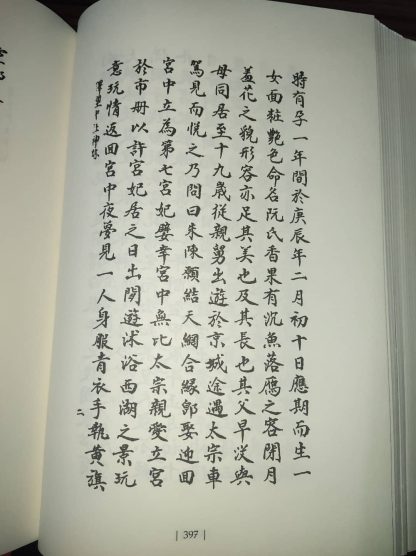 時有孕一年間於庚辰年二月初十日應期而生一
女面粧艷色命名阮氏香果有沉魚落鴈之容閉月
羞花之貌形容亦足其美也及其長也其父早没與
母同居至十九歲従親舅出遊於京城途遇太宗車
駕見而悅之乃問曰朱陳願結天綢合縁卽娶迎回
宮中立為第七宮妃嬖幸宮中無比太宗親愛立宮
於市册以許宮妃居之日出開遊沭浴西湖之景玩
意玩情返回宮中夜夢見一人身服青衣手執黄旗
二
| 397 |